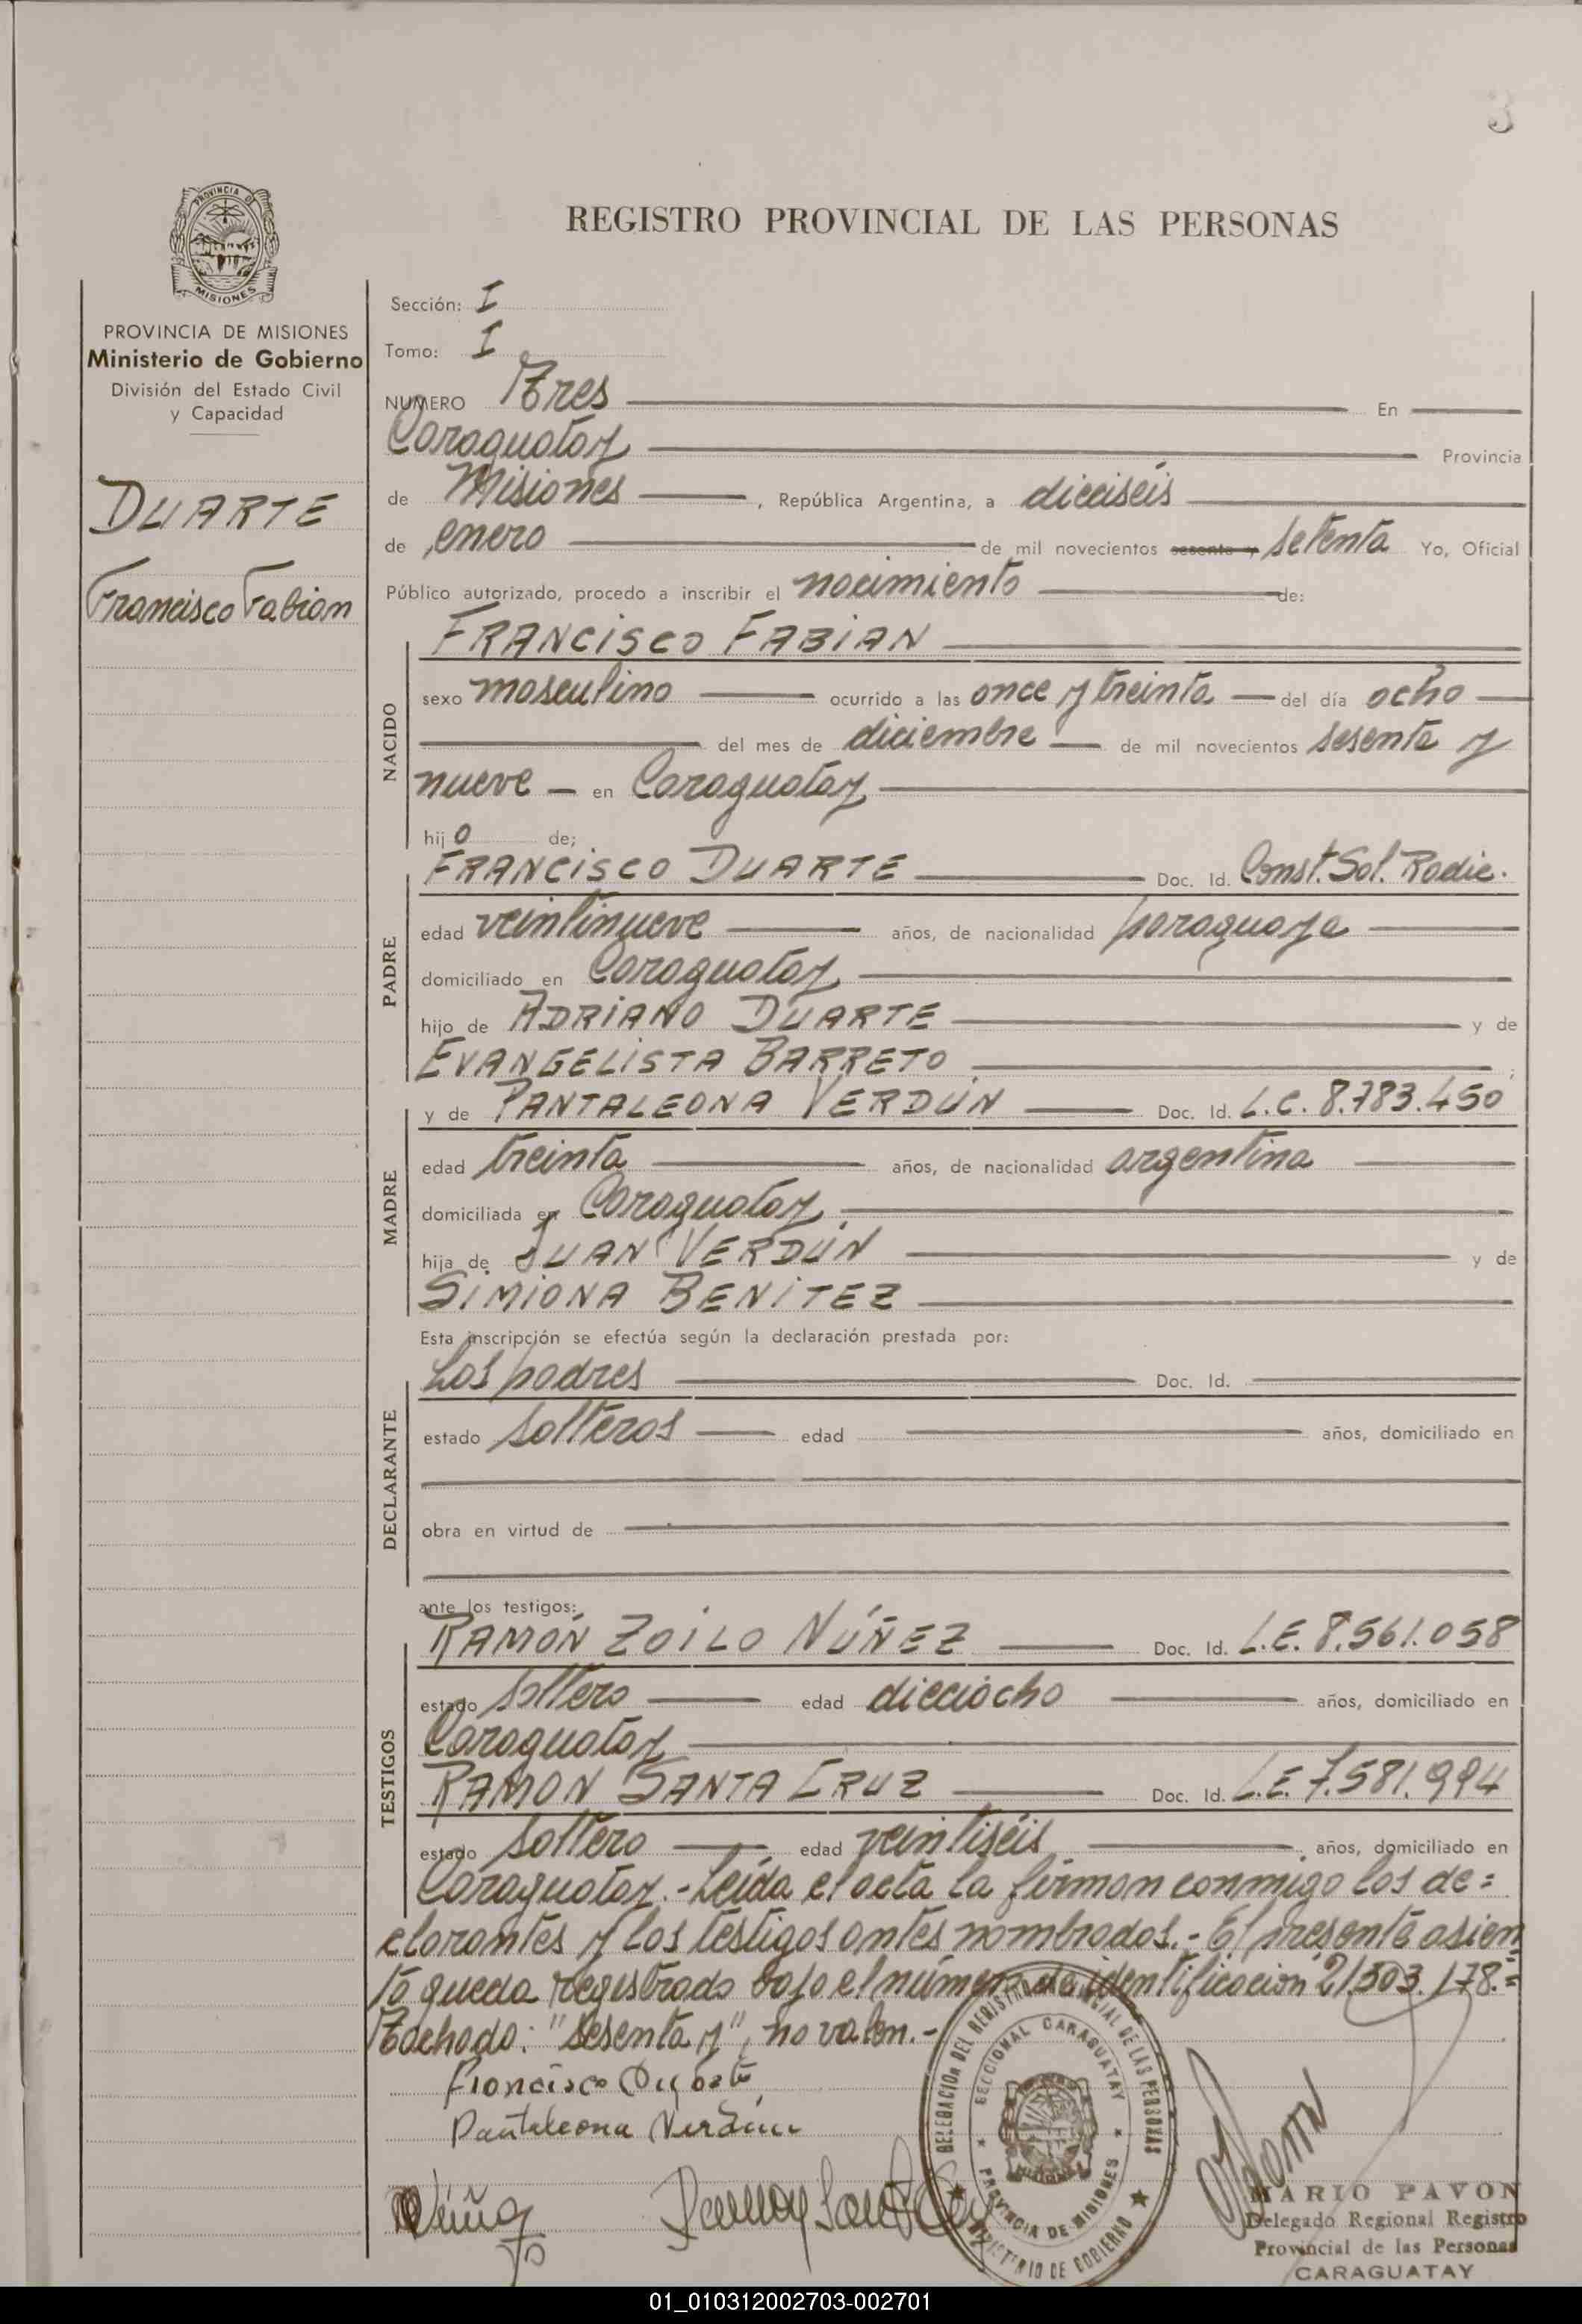 3
PROVINCIA DE
MISIONES
REGISTRO PROVINCIAL DE LAS PERSONAS
PROVINCIA DE MISIONES
Ministerio de Gobierno
División del Estado Civil
y Capacidad
DUARTE
Francisco Fabian
Sección: I
Tomo: I
NUMERO Tres En
Caraguatay Provincia
de Misiones, República Argentina, a dieciséis
de enero de mil novecientos sesenta y setenta Yo, Oficial
Público autorizado, procedo a inscribir el nacimiento de:
NACIDO
FRANCISCO FABIAN
sexo masculino ocurrido a las once y treinta del día ocho
del mes de diciembre de mil novecientos sesenta y
nueve en Caraguatay
hijo de;
PADRE
FRANCISCO DUARTE Doc. Id. Const. Sol. Radic.
edad veintinueve años, de nacionalidad paraguaya
domiciliado en Caraguatay
hijo de ADRIANO DUARTE y de
EVANGELISTA BARRETO;
MADRE
y de PANTALEONA VERDÚN Doc. Id. L.C. 8.783.450
edad treinta años, de nacionalidad argentina
domiciliada en Caraguatay
hija de JUAN VERDÚN y de
SIMIONA BENITEZ
Esta inscripción se efectúa según la declaración prestada por:
DECLARANTE
Los padres Doc. Id.
estado solteros edad años, domiciliado en
obra en virtud de
ante los testigos:
TESTIGOS
RAMÓN ZOILO NÚÑEZ Doc. Id. L.E. 8.561.058
estado soltero edad dieciocho años, domiciliado en
Caraguatay
RAMON SANTA CRUZ Doc. Id. L.E. 7.581.994
estado soltero edad veintiséis años, domiciliado en
Caraguatay.- Leída el acta la firman conmigo los de=
clarantes y los testigos antes nombrados.- El presente asien
to queda registrado bajo el número de identificación 21.503.178.=
Tachado: "sesenta y", no valen.-
Francisco Duarte
Pantaleona Verdún
Ramon Santa Cruz
DELEGACION DEL REGISTRO PROVINCIAL DE LAS PERSONAS
SECCIONAL CARAGUATAY
PROVINCIA DE MISIONES
MINISTERIO DE GOBIERNO
MARIO PAVON
Delegado Regional Registro
Provincial de las Personas
CARAGUATAY
01_010312002703-002701